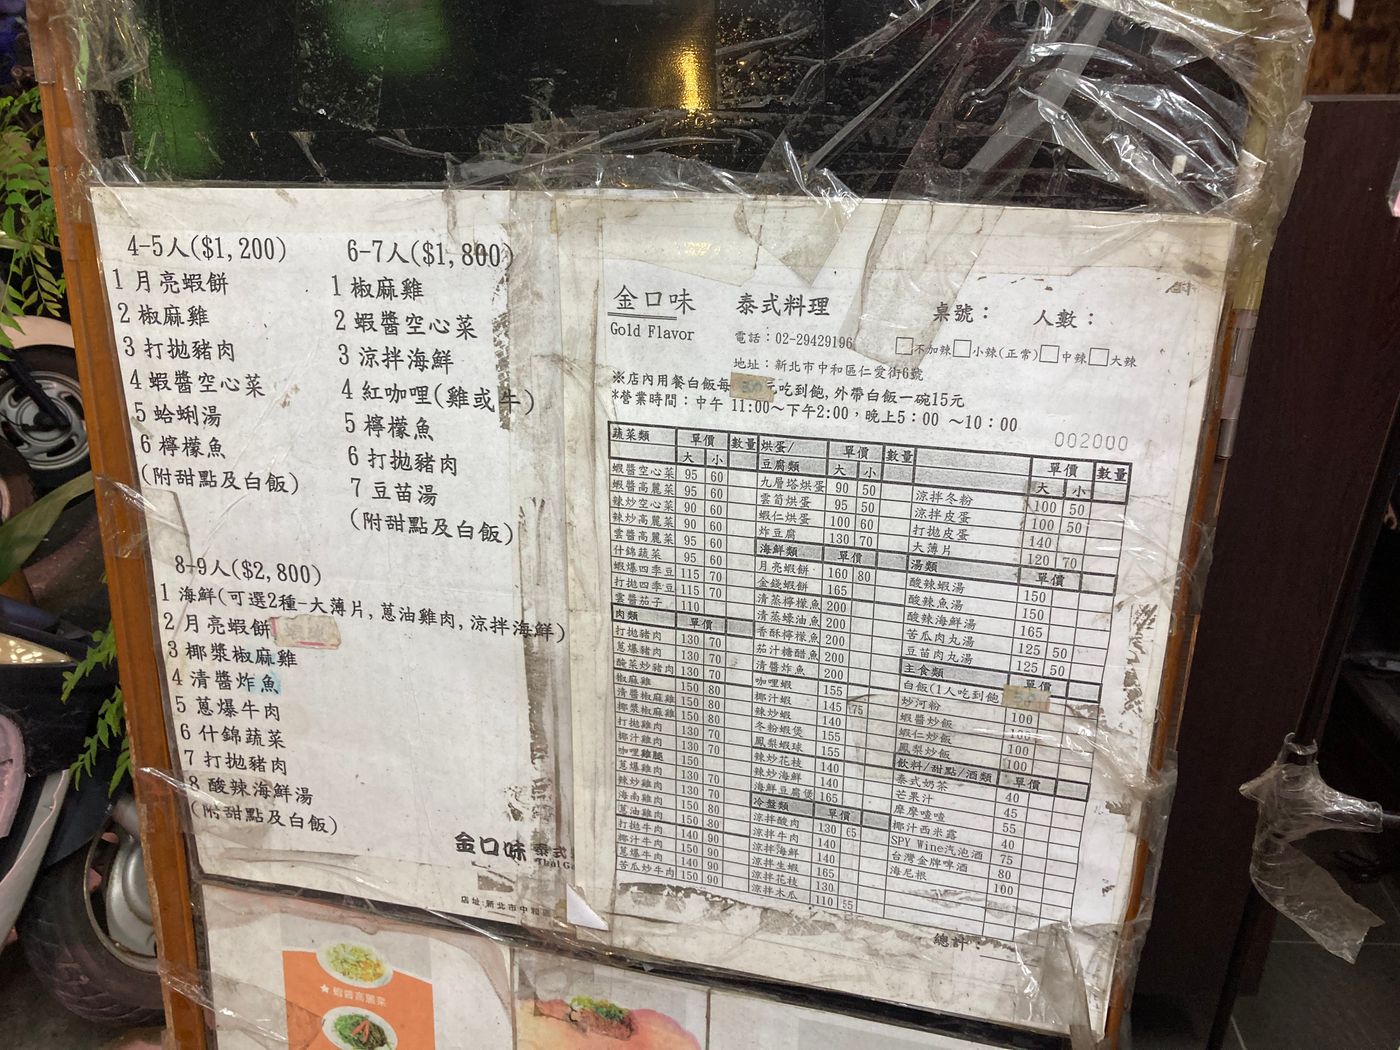 4-5人($1,200)
1 月亮蝦餅
2 椒麻雞
3 打拋豬肉
4 蝦醬空心菜
5 蛤蜊湯
6 檸檬魚
(附甜點及白飯)
6-7人($1,800)
1 椒麻雞
2 蝦醬空心菜
3 涼拌海鮮
4 紅咖哩(雞或牛)
5 檸檬魚
6 打拋豬肉
7 豆苗湯
(附甜點及白飯)
8-9人($2,800)
1 海鮮(可選2種-大薄片,蔥油雞肉,涼拌海鮮)
2 月亮蝦餅
3 椰漿椒麻雞
4 清醬炸魚
5 蔥爆牛肉
6 什錦蔬菜
7 打拋豬肉
8 酸辣海鮮湯
(附甜點及白飯)
金口味 泰式
店址:新北市中和區
金口味 泰式料理 桌號： 人數：
Gold Flavor 電話：02-29429196 □不加辣□小辣(正常)□中辣□大辣
地址：新北市中和區仁愛街6號
※店內用餐白飯每 元吃到飽,外帶白飯一碗15元
*營業時間：中午 11:00～下午2:00，晚上5：00 ～10：00
002000
蔬菜類 單價 數量
大 小
蝦醬空心菜 95 60
蝦醬高麗菜 95 60
辣炒空心菜 90 60
辣炒高麗菜 90 60
雲醬高麗菜 95 60
什錦蔬菜 95 60
蝦爆四季豆 115 70
打拋四季豆 115 70
雲醬茄子 110
肉類 單價
打拋豬肉 130 70
蔥爆豬肉 130 70
酸菜炒豬肉 130 70
椒麻雞 150 80
清醬椒麻雞 150 80
椰漿椒麻雞 150 80
打拋雞肉 130 70
椰汁雞肉 130 70
咖哩雞腿 150
蔥爆雞肉 130 70
辣炒雞肉 130 70
海南雞肉 150 80
蔥油雞肉 150 80
打拋牛肉 140 90
椰汁牛肉 150 90
蔥爆牛肉 140 90
苦瓜炒牛肉 150 90
烘蛋/豆腐類 單價 數量
大 小
九層塔烘蛋 90 50
雲筍烘蛋 95 50
蝦仁烘蛋 100 60
炸豆腐 130 70
海鮮類 單價
月亮蝦餅 160 80
金錢蝦餅 165
清蒸檸檬魚 200
清蒸蠔油魚 200
香酥檸檬魚 200
茄汁糖醋魚 200
清醬炸魚 200
咖哩蝦 155
椰汁蝦 145 75
辣炒蝦 140
冬粉蝦煲 155
鳳梨蝦球 155
辣炒花枝 140
辣炒海鮮 140
海鮮豆腐煲 165
冷盤類 單價
涼拌酸肉 130 65
涼拌牛肉 140
涼拌海鮮 140
涼拌生蝦 165
涼拌花枝 130
涼拌木瓜 110 55
單價 數量
大 小
涼拌冬粉 100 50
涼拌皮蛋 100 50
打拋皮蛋 140
大薄片 120 70
湯類 單價
酸辣蝦湯 150
酸辣魚湯 150
酸辣海鮮湯 165
苦瓜肉丸湯 125 50
豆苗肉丸湯 125 50
主食類 單價
白飯(1人吃到飽
炒河粉 100
蝦醬炒飯 100
蝦仁炒飯 100
鳳梨炒飯 100
飲料/甜點/酒類 單價
泰式奶茶 40
芒果汁 45
摩摩喳喳 55
椰汁西米露 40
SPY Wine汽泡酒 75
台灣金牌啤酒 80
海尼根 100
總計：
★蝦醬高麗菜